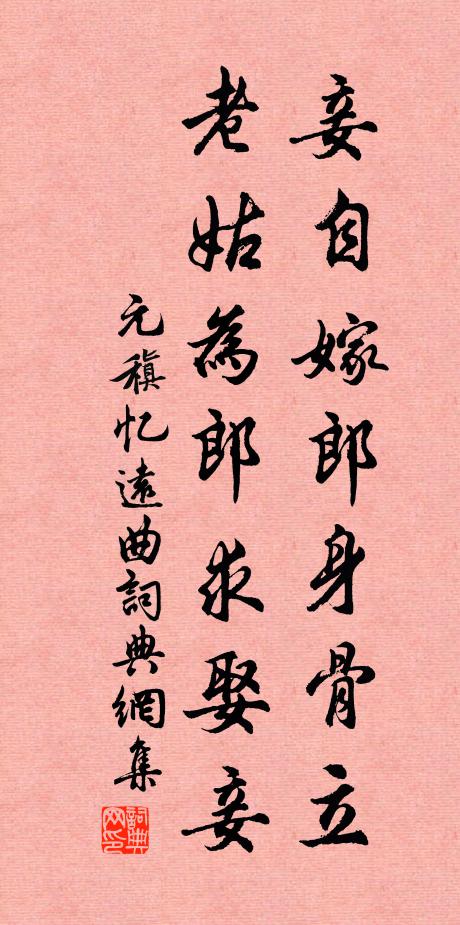 妾自嫁郎身骨立
老姑為郎求娶妾
元稹忆遠曲詞典網集
詞典网印